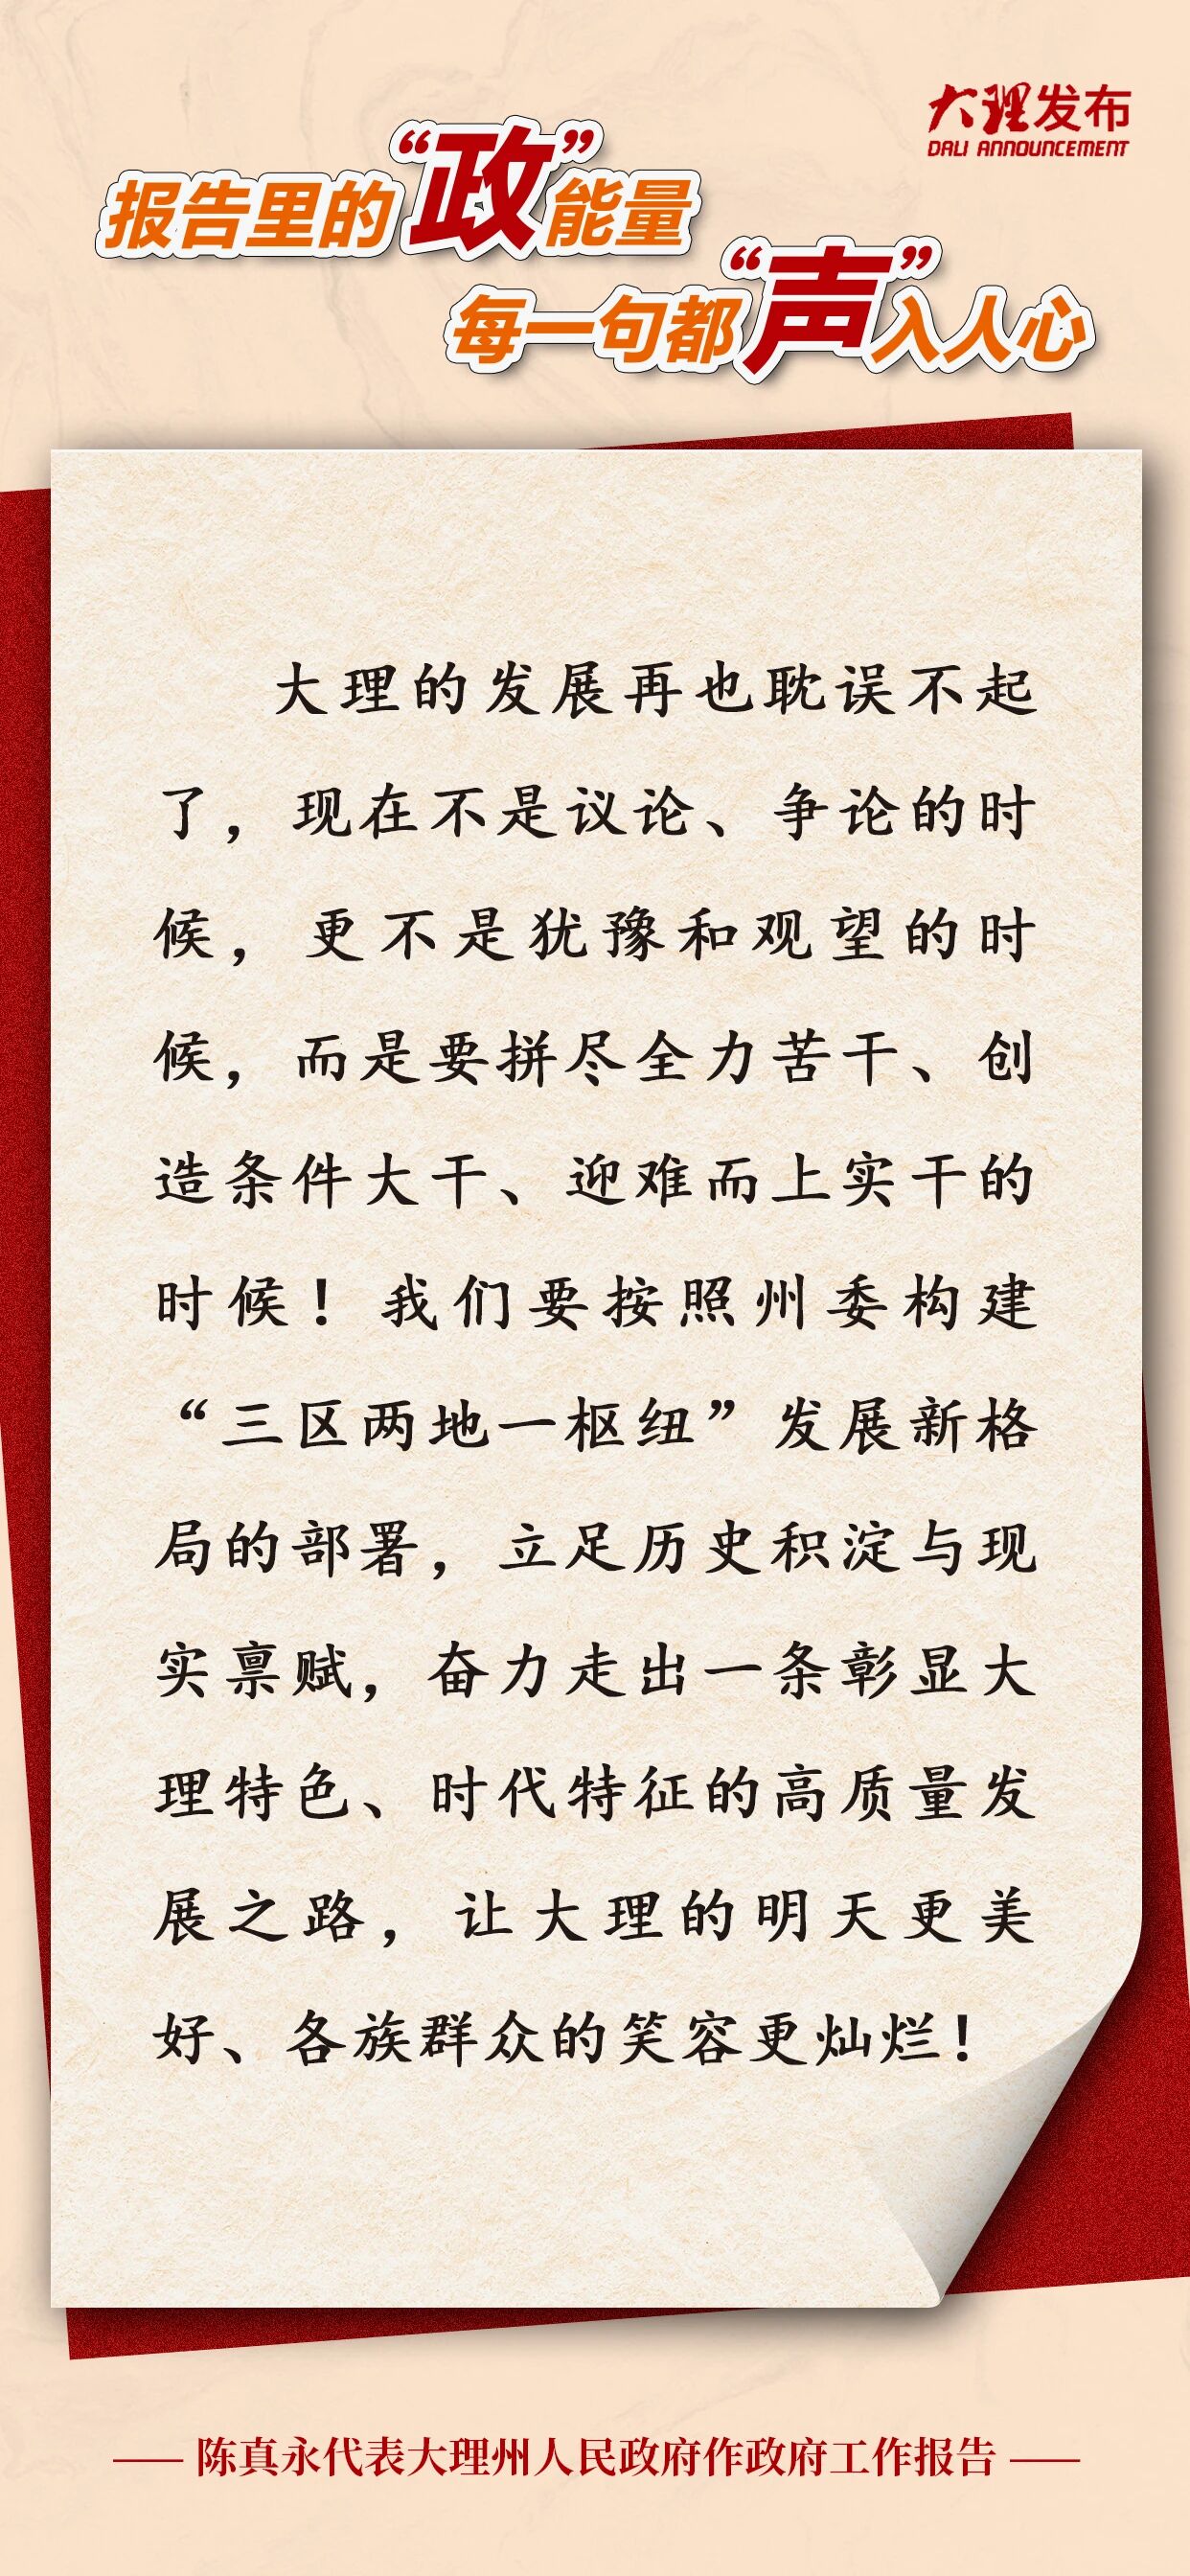 大理发布
DALI ANNOUNCEMENT
报告里的“政”能量
每一句都“声”入人心
大理的发展再也耽误不起
了，现在不是议论、争论的时
候，更不是犹豫和观望的时
候，而是要拼尽全力苦干、创
造条件大干、迎难而上实干的
时候！我们要按照州委构建
“三区两地一枢纽”发展新格
局的部署，立足历史积淀与现
实禀赋，奋力走出一条彰显大
理特色、时代特征的高质量发
展之路，让大理的明天更美
好、各族群众的笑容更灿烂！
—— 陈真永代表大理州人民政府作政府工作报告 ——